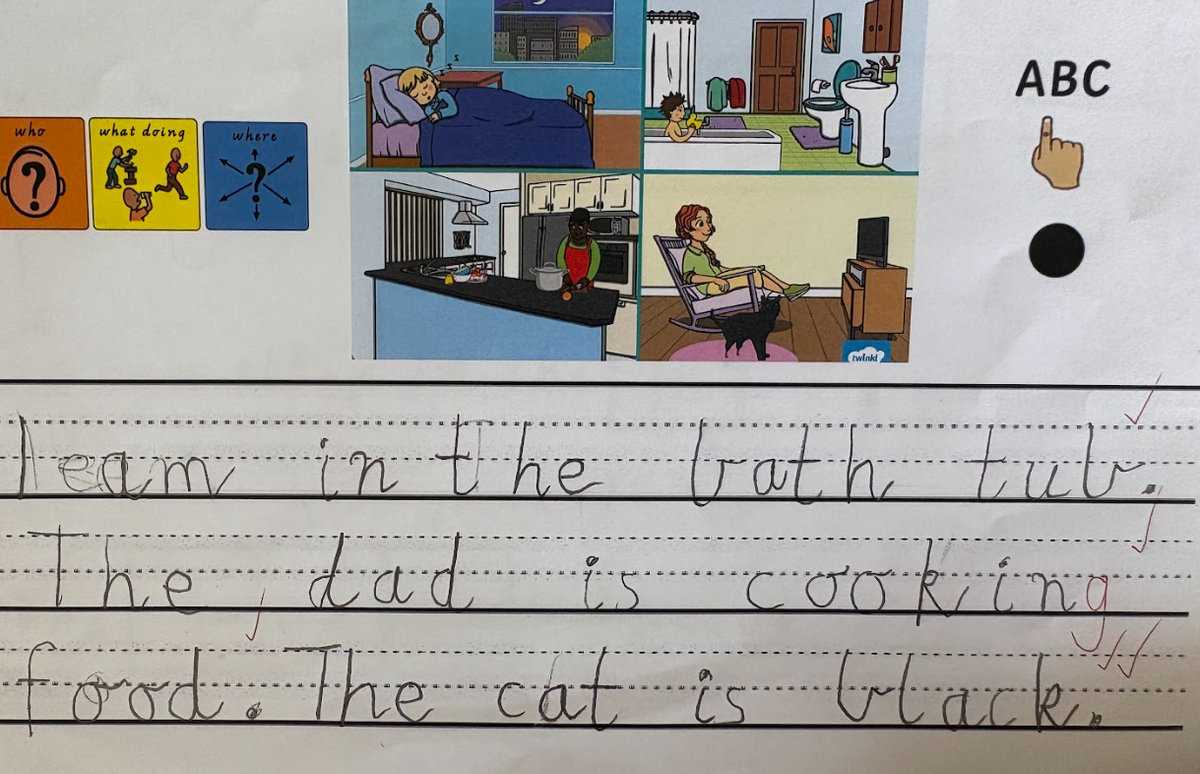 who what doing where
z z z
ABC
twinkl
leam in the bath tub.
The dad is cooking
food. The cat is black.